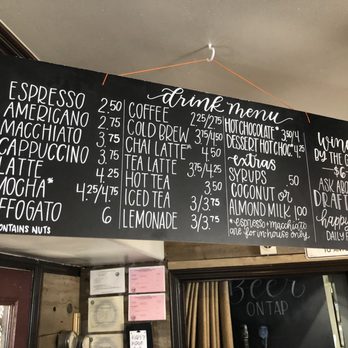 drink menu
ESPRESSO 2.50
AMERICANO 2.75
MACCHIATO 3.75
CAPPUCCINO 3.75
LATTE 4.25
MOCHA* 4.25/4.75
FFOGATO 6
ONTAINS NUTS
COFFEE 2.25/2.75
COLD BREW 3.75/4.50
CHAI LATTE* 4.50
TEA LATTE 3.75/4.50
HOT TEA 3.50
ICED TEA 3/3.75
LEMONADE 3/3.75
HOT CHOCOLATE* 3.50/4
DESSERT HOT CHOC. 4.25
extras
SYRUPS .50
COCONUT or
ALMOND MILK 1.00
*espresso + macchiato
are for in house only
wine
BY THE G
$6
ASK ABO
DRAFT
happy
DAILY
BEER
ON TAP